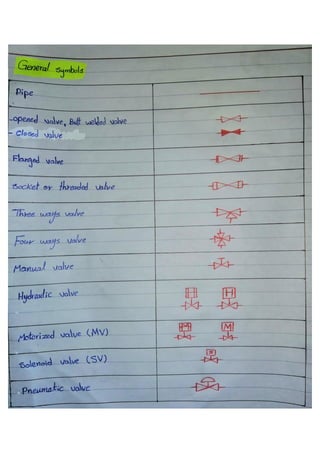 General symbols
Pipe
- opened valve, Butt welded valve
- Closed valve
Flanged valve
Socket or threaded valve
Three ways valve
Four ways valve
Manual valve
Hydraulic valve
H H
Motorized valve (MV)
M M
Solenoid valve (SV)
Pneumatic valve